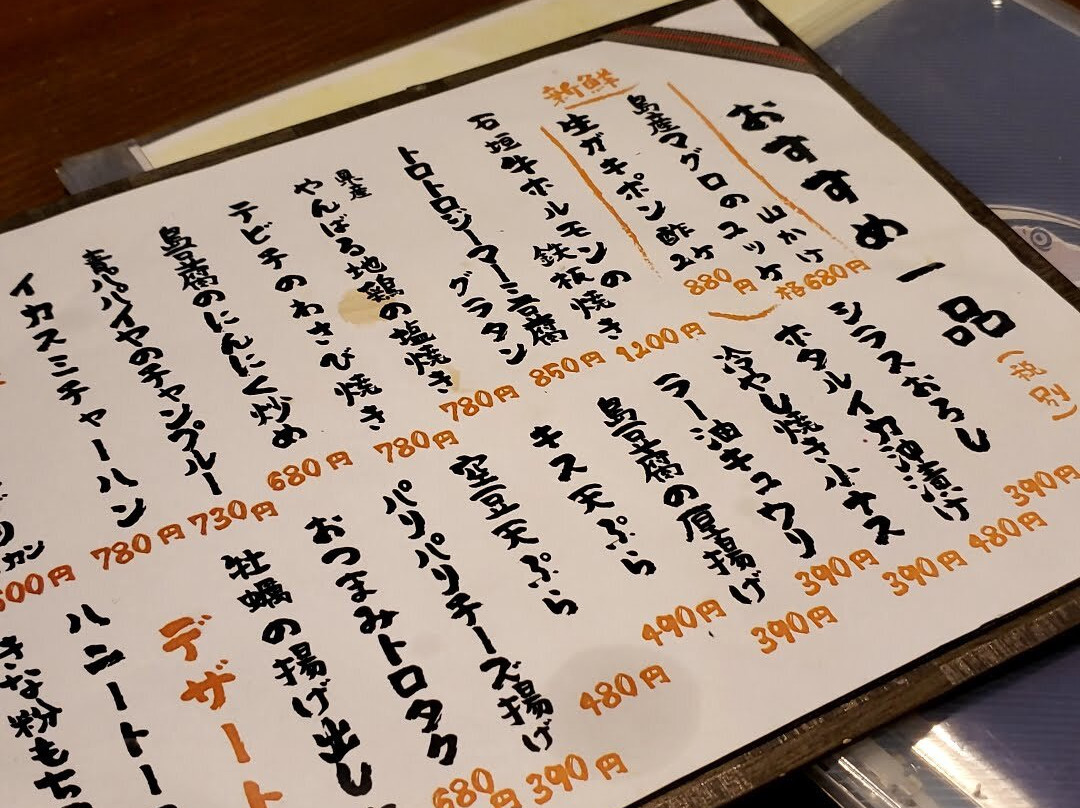 おすすめ一品
(税別)
新鮮
島産マグロのユッケ
山かけ
各680円
生ガキポン酢
ユッケ
880円
石垣牛ホルモンの
鉄板焼き
1200円
トロトロジーマーミ豆腐
グラタン
850円
県産
やんばる地鶏の塩焼き
780円
テビチのわさび焼き
780円
島豆腐のにんにく炒め
680円
青パパイヤのチャンプルー
730円
イカスミチャーハン
780円
シラスおろし
390円
ホタルイカ沖漬け
480円
冷やし焼き小ナス
390円
ラー油キュウリ
390円
島豆腐の厚揚げ
390円
キス天ぷら
490円
空豆天ぷら
480円
パリパリチーズ揚げ
390円
おつまみトロタク
680円
牡蠣の揚げ出し
デザート
ハニートー
きな粉もち